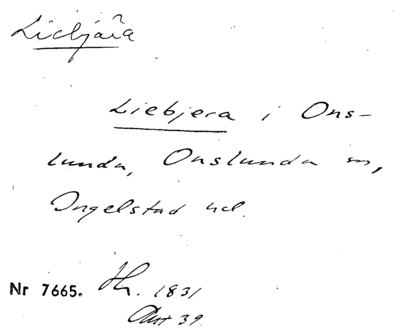 Liebjära
Liebjera i Ons-
lunda, Onslunda sn,
Ingelstad hd.
Nr 7665. Hh. 1831
Akt 39.